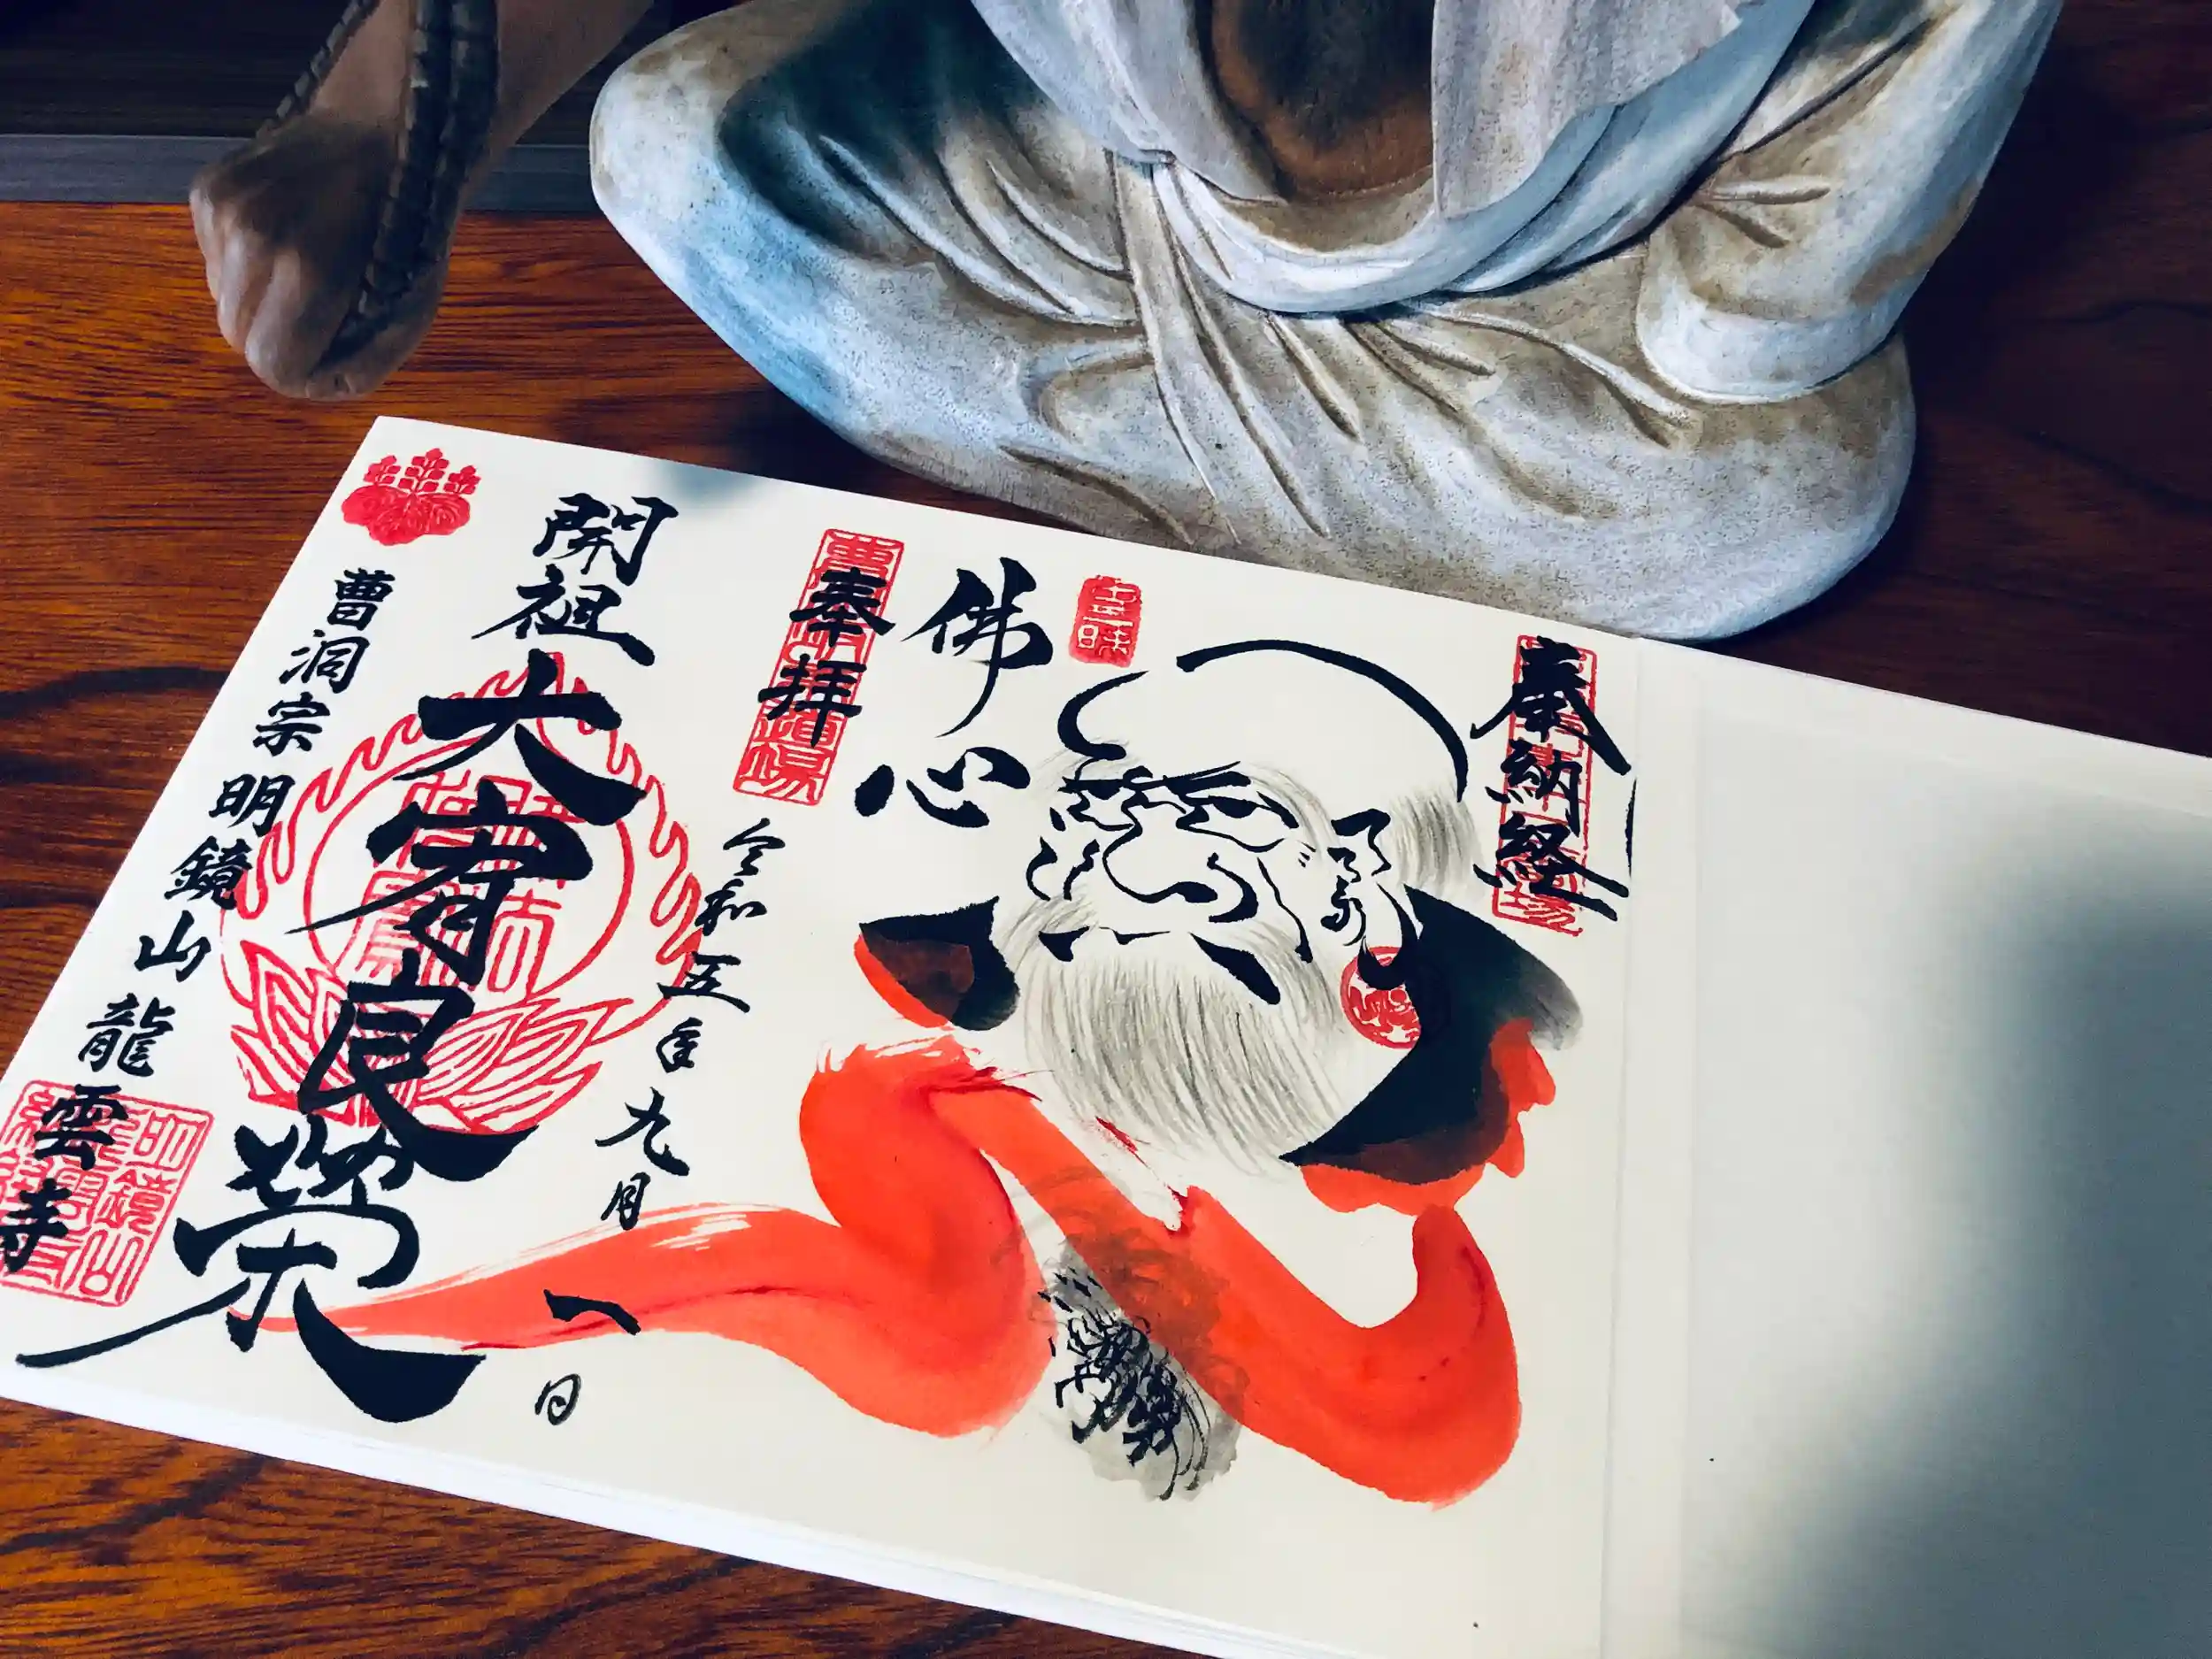 奉納経
佛心
奉拝
令和五年九月一日
開祖
大宥良榮
曹洞宗明鏡山龍雲寺